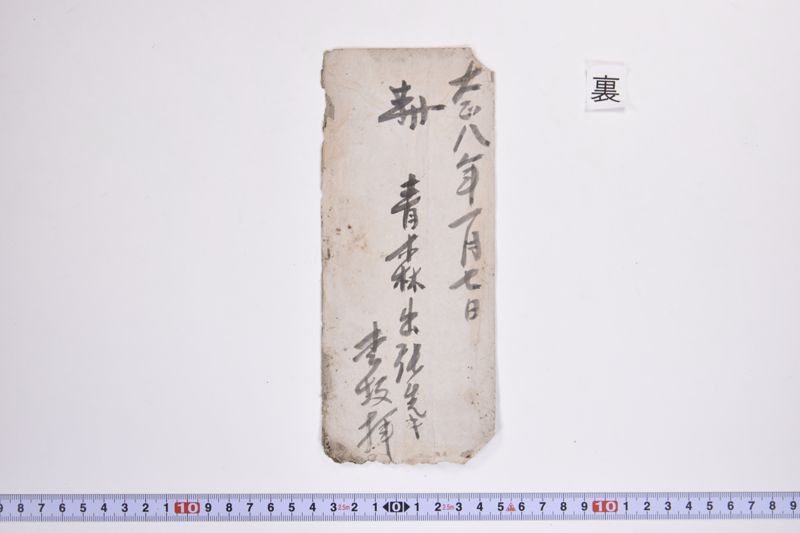 裏
大正八年一月七日
青森出張先キ
拝
9 8 7 6 5 4 3 2 1 10 9 8 7 6 5 4 3 2.5m 2 1 0 1 2 2.5m 3 4 5 6 7 8 9 10 1 2 3 4 5 6 7 8 9